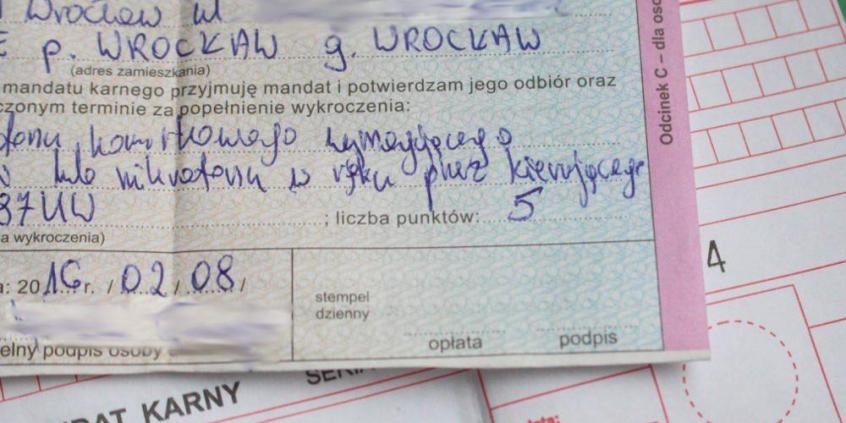 Wrocław ul
p. WROCŁAW g. WROCŁAW
(adres zamieszkania)
mandatu karnego przyjmuję mandat i potwierdzam jego odbiór oraz
czonym terminie za popełnienie wykroczenia:
fonu komórkowego wymagającego
lub mikrofonu w ręku przez kierującego
37UW ; liczba punktów: 5
a wykroczenia)
: 2016 r. / 02 / 08 /
stempel
dzienny
opłata podpis
elny podpis osoby
Odcinek C – dla oso
4
SERI
DAT KARNY